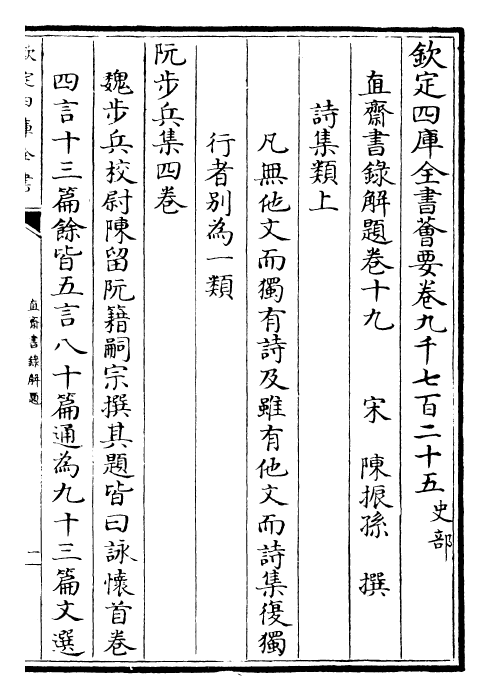 欽定四庫全書薈要卷九千七百二十五 史部
直齋書錄解題卷十九 宋 陳振孫 撰
詩集類上
凡無他文而獨有詩及雖有他文而詩集復獨
行者別為一類
阮步兵集四卷
魏步兵校尉陳留阮籍嗣宗撰其題皆曰詠懷首卷
四言十三篇餘皆五言八十篇通為九十三篇文選
欽定四庫全書
直齋書錄解題
一